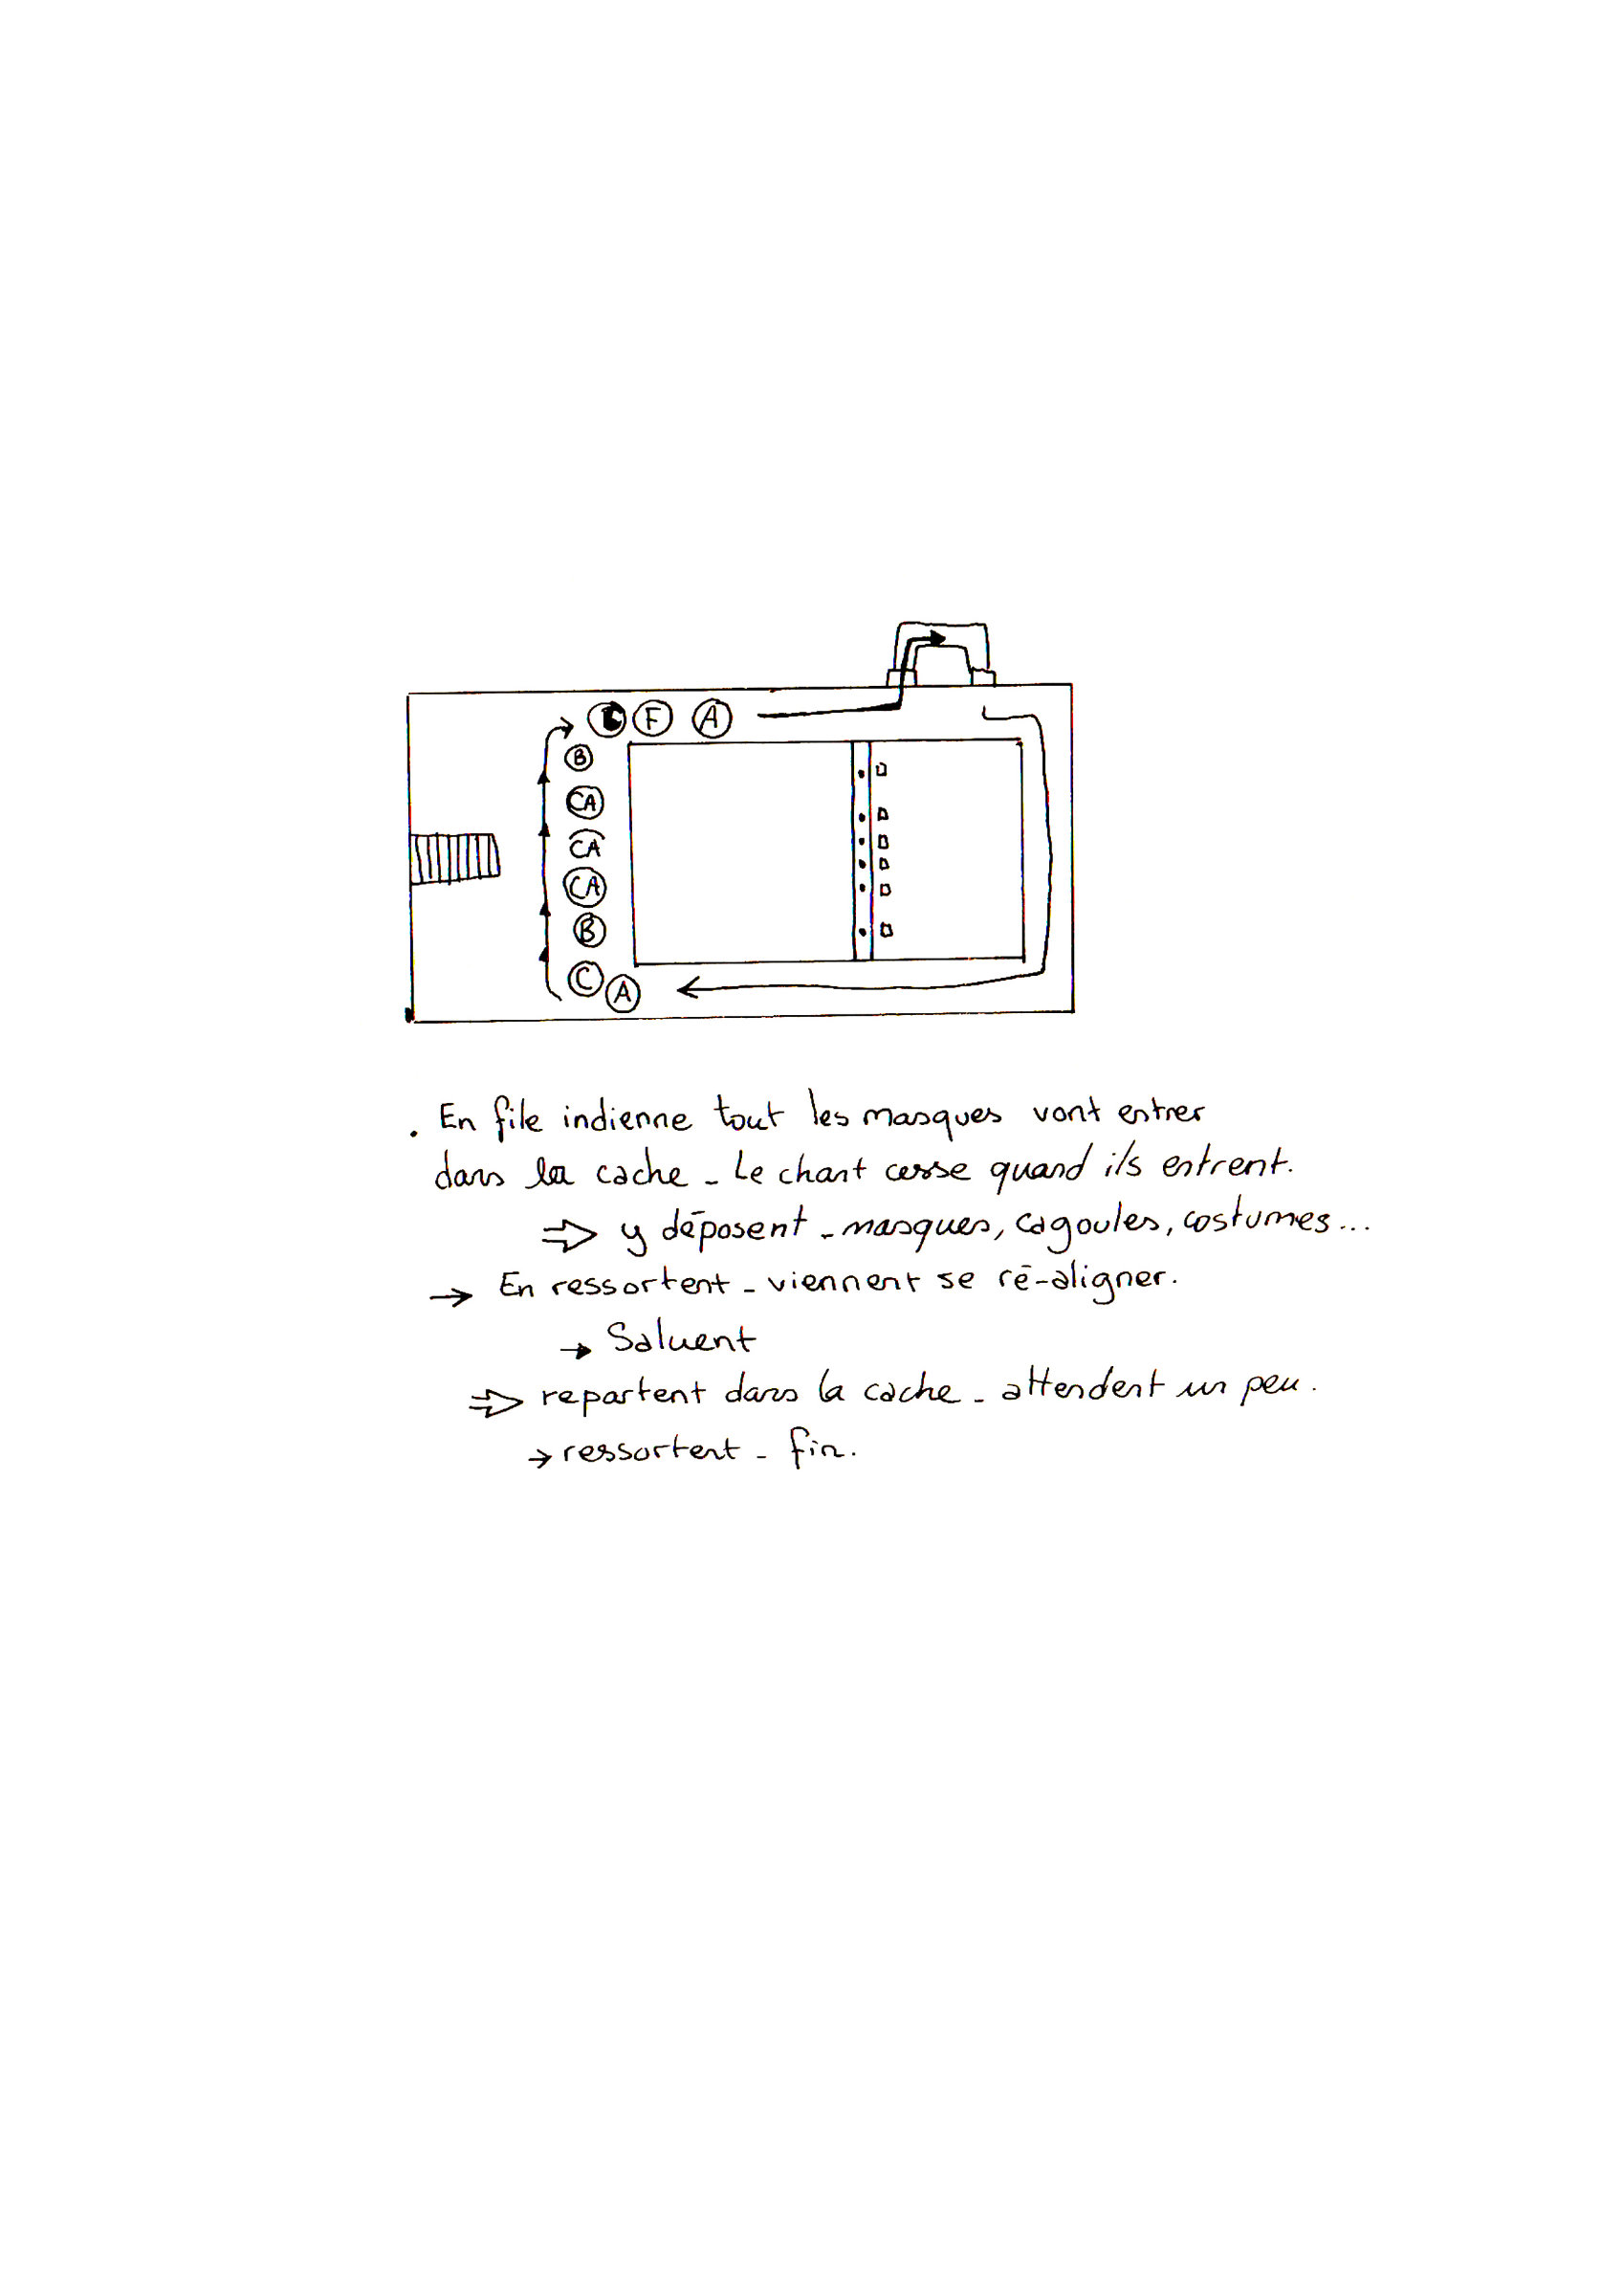 F A
B
CA
CA
CA
B
C
A
. En file indienne tout les masques vont entrer
dans la cache - Le chant cesse quand ils entrent.
⇒ y déposent - masques, cagoules, costumes...
→ En ressortent - viennent se ré-aligner.
→ Saluent
⇒ repartent dans la cache - attendent un peu.
→ ressortent - fin.